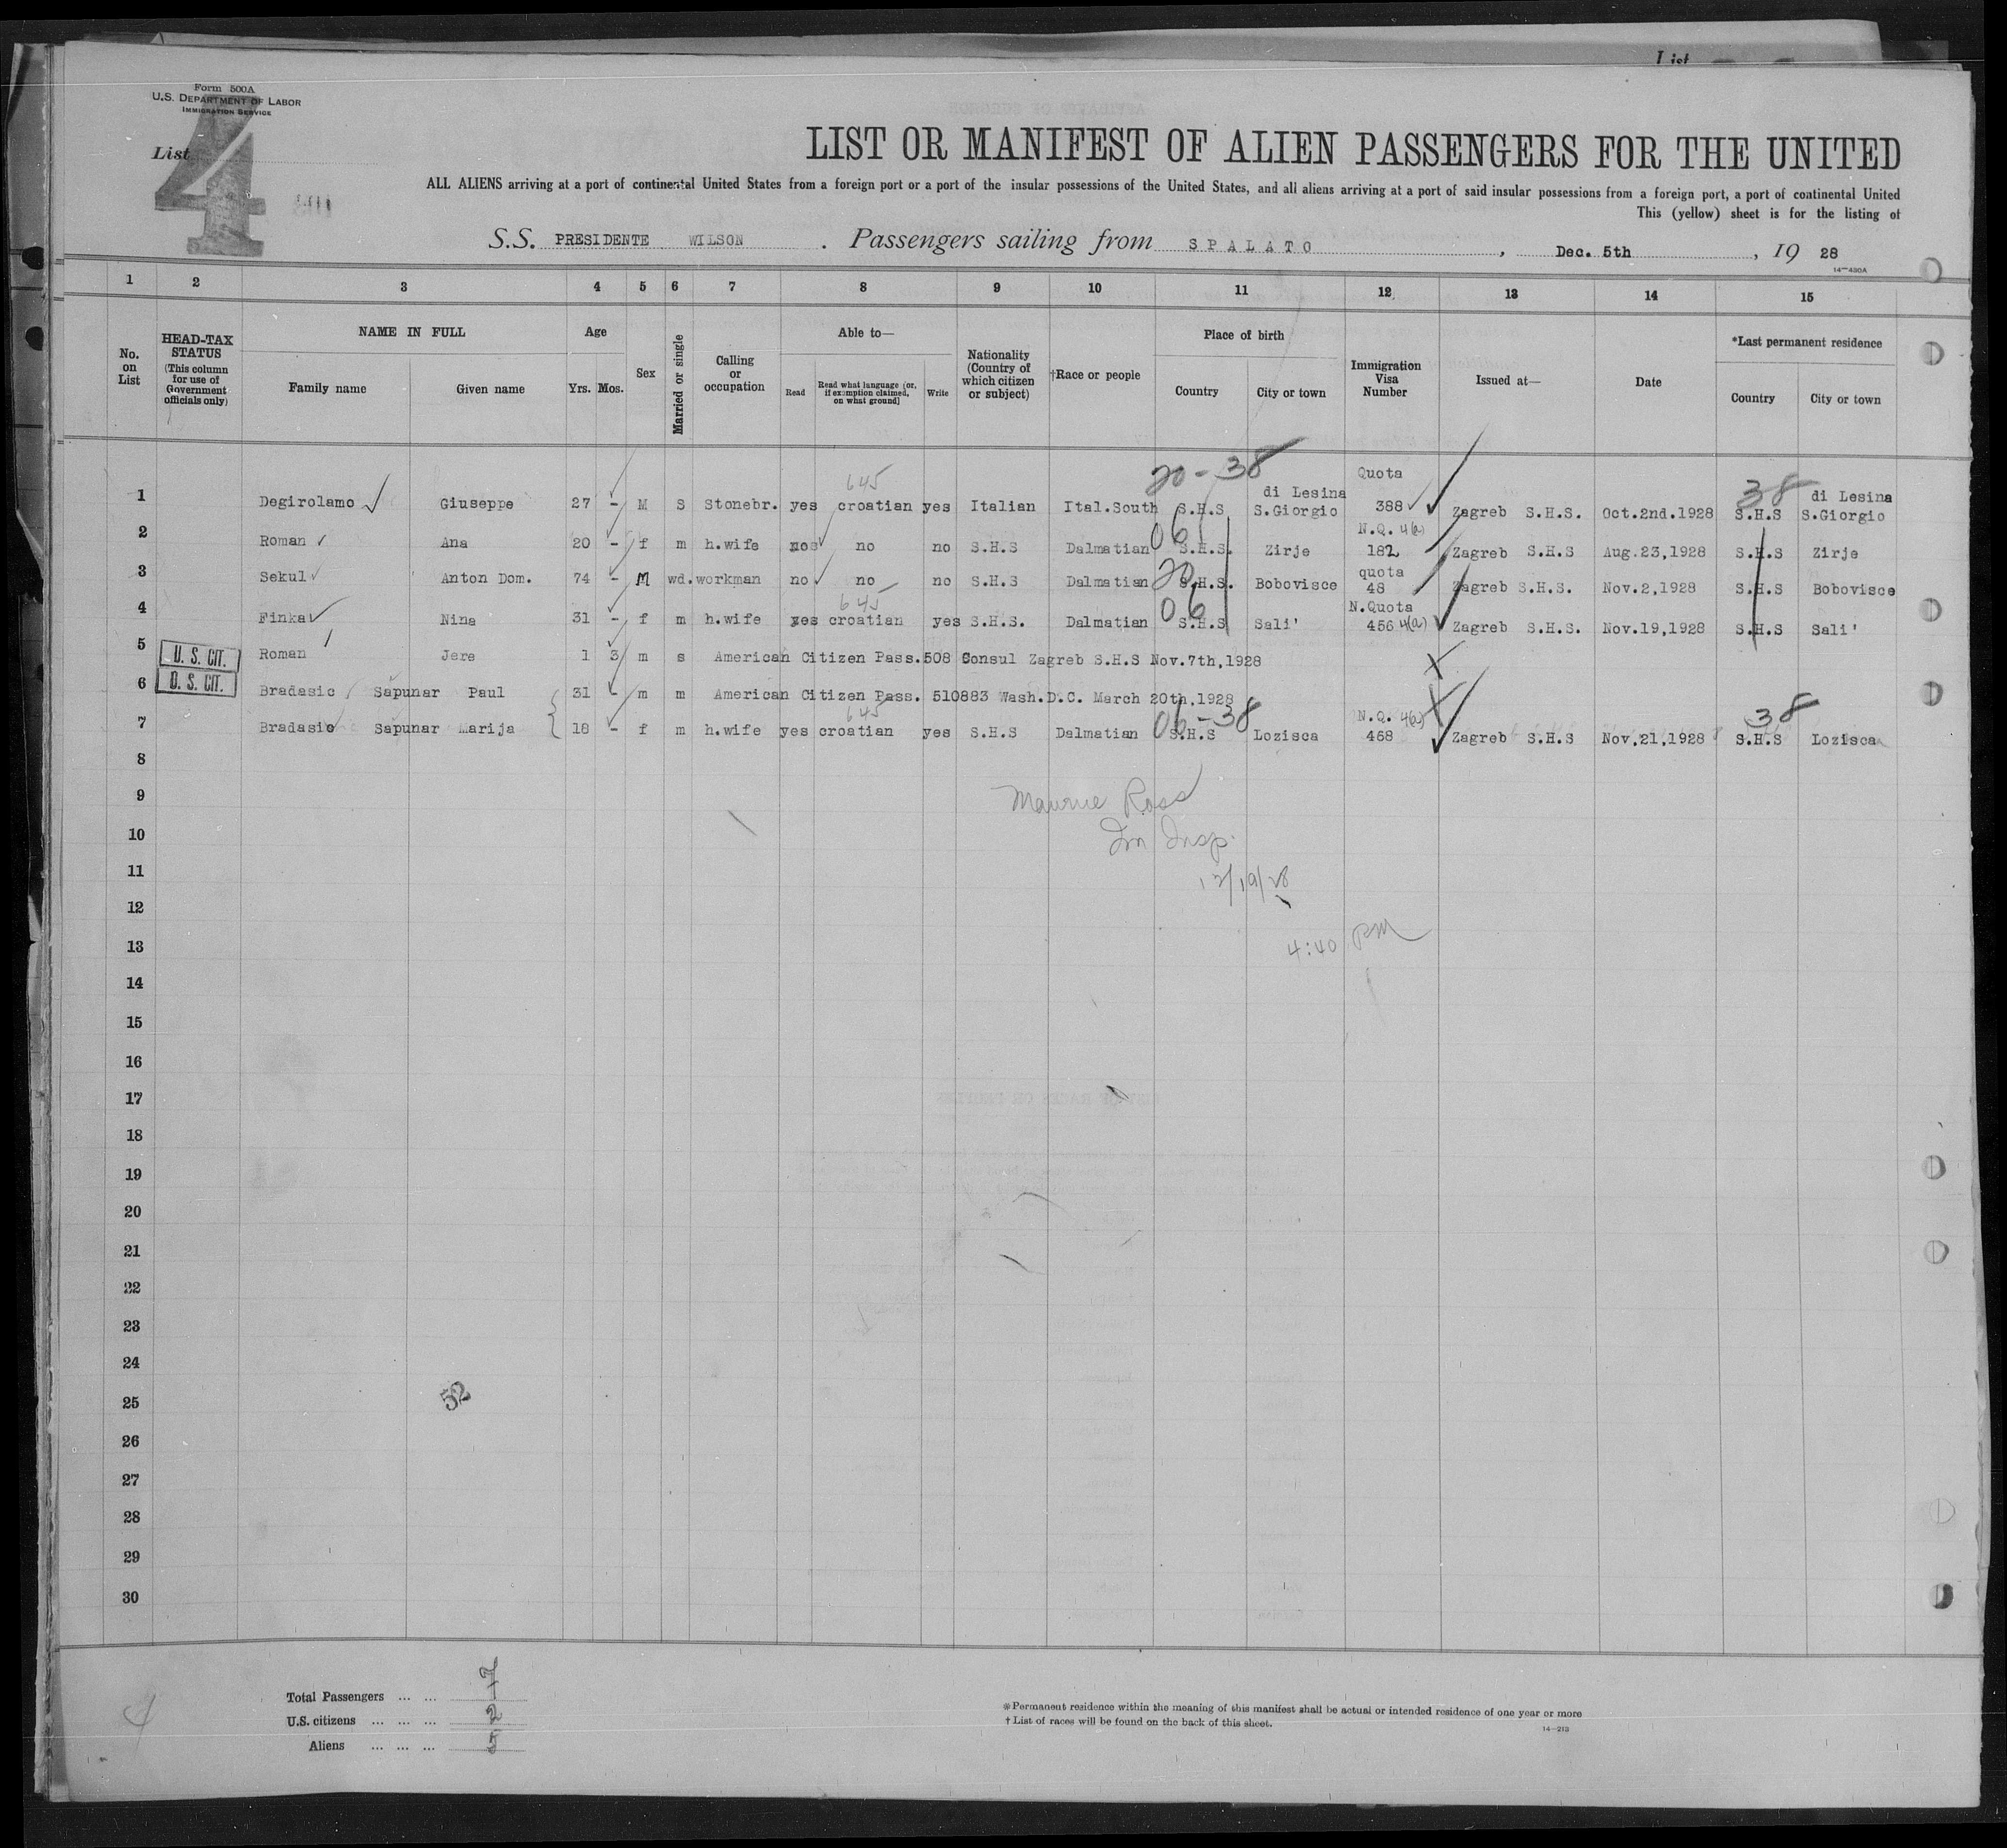 List
Form 500A
U.S. DEPARTMENT OF LABOR
IMMIGRATION SERVICE
List
4
LIST OR MANIFEST OF ALIEN PASSENGERS FOR THE UNITED
ALL ALIENS arriving at a port of continental United States from a foreign port or a port of the insular possessions of the United States, and all aliens arriving at a port of said insular possessions from a foreign port, a port of continental United
This (yellow) sheet is for the listing of
S.S. PRESIDENTE WILSON . Passengers sailing from SPALATO , Dec. 5th , 19 28
14—430A
1 2 3 4 5 6 7 8 9 10 11 12 13 14 15
No. on List
HEAD-TAX STATUS (This column for use of Government officials only)
NAME IN FULL
Family name Given name
Age
Yrs. Mos.
Sex
Married or single
Calling or occupation
Able to—
Read Read what language [or, if exemption claimed, on what ground] Write
Nationality (Country of which citizen or subject)
†Race or people
Place of birth
Country City or town
Immigration Visa Number
Issued at—
Date
*Last permanent residence
Country City or town
645 20-38 Quota 38
di Lesina di Lesina
1 Degirolamo Giuseppe 27 - M S Stonebr. yes croatian yes Italian Ital.South S.H.S S.Giorgio 388 Zagreb S.H.S. Oct.2nd.1928 S.H.S S.Giorgio
06 N.Q. 4(a)
2 Roman Ana 20 - f m h.wife no no S.H.S Dalmatian S.H.S. Zirje 182 Zagreb S.H.S Aug.23,1928 S.H.S Zirje
20 quota
3 Sekul Anton Dom. 74 - M wd. workman no no no S.H.S Dalmatian S.H.S. Bobovisce 48 Zagreb S.H.S. Nov.2,1928 S.H.S Bobovisce
645 06 N.Quota
4 Finka Nina 31 - f m h.wife yes croatian yes S.H.S. Dalmatian S.H.S Sali' 456 4(a) Zagreb S.H.S. Nov.19,1928 S.H.S Sali'
5 U. S. CIT. Roman Jere 1 3 m s American Citizen Pass.508 Consul Zagreb S.H.S Nov.7th,1928
6 U. S. CIT. Bradasic Sapunar Paul 31 - m m American Citizen Pass. 510883 Wash.D.C. March 20th,1928
645 06-38 N.Q. 4(a) 38
7 Bradasic Sapunar Marija 18 - f m h.wife yes croatian yes S.H.S Dalmatian S.H.S Lozisca 468 Zagreb S.H.S Nov,21,1928 S.H.S Lozisca
8
9 Ross
10 Im Insp.
11 12/19/28
12
13 4:40 PM
14
15
16
17
18
19
20
21
22
23
24
25 52
26
27
28
29
30
Total Passengers ... ... 7
U.S. citizens ... ... ... 2
Aliens ... ... ... 5
4
*Permanent residence within the meaning of this manifest shall be actual or intended residence of one year or more
† List of races will be found on the back of this sheet.
14—213